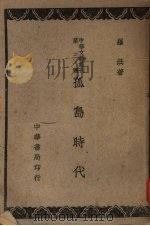 羅洪著
中華文藝叢刊
孤島時代
中華書局印行